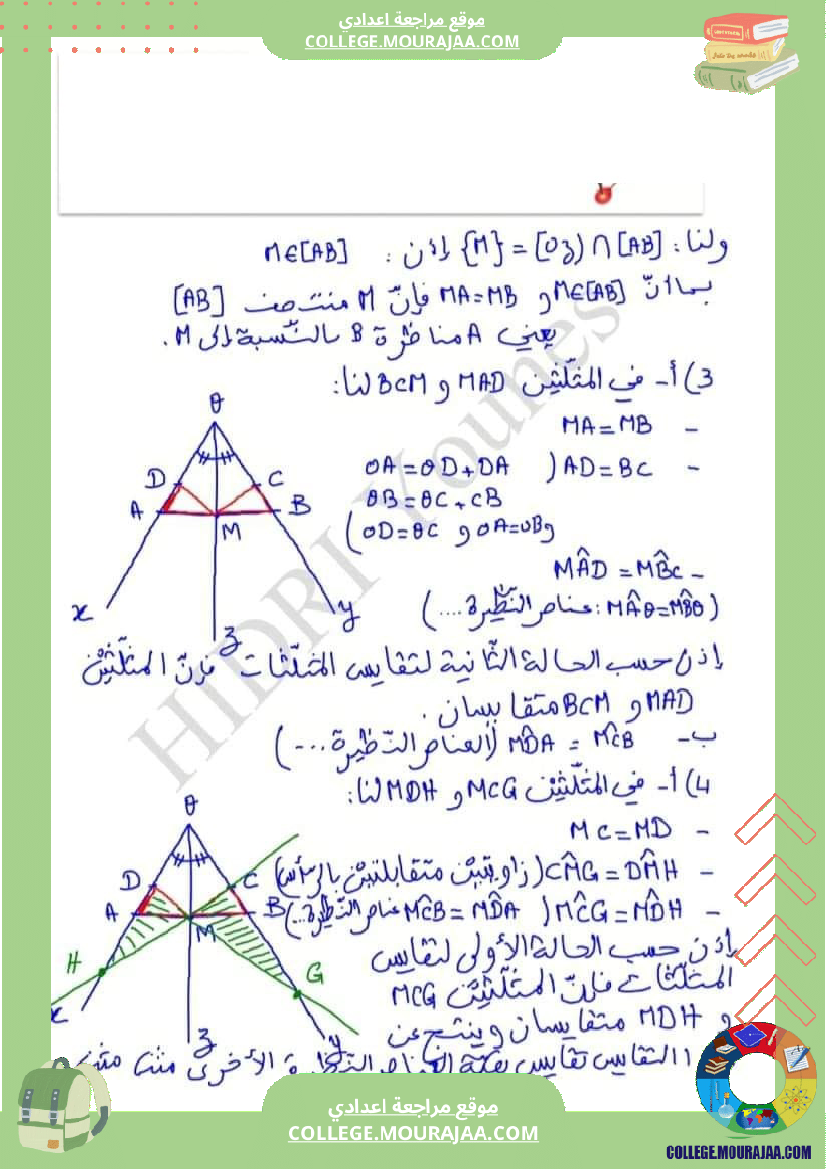 موقع مراجعة اعدادي
COLLEGE.MOURAJAA.COM
ولنا: [AB] ∩ (Oz] = {M} إذن : M∈[AB]
بما أنّ M∈[AB] و MA=MB فإنّ M منتصف [AB]
يعني A مناظرة B بالنّسبة إلى M.
3) أ- في المثلّثين MAD و BCM لنا:
- MA=MB
- AD=BC ( OA=OD+DA
OB=OC+CB
و OA=OB و OD=OC )
- MÂD = MB̂C
(MÂO=MB̂O : عناصر النّظيرة....)
إذن حسب الحالة الثّانية لتقايس المثلّثات فإنّ المثلّثين
MAD و BCM متقايسان .
ب- MĈB = MD̂A (العناصر النّظيرة...)
4) أ- في المثلّثين MCG و MDH لنا:
- MC=MD
- CM̂G = DM̂H (زاويتين متقابلتين بالرأس)
- MĈG = MD̂H ( MĈB = MD̂A عناصر النّظيرة...)
إذن حسب الحالة الأولى لتقايس
المثلّثات فإنّ المثلّثين MCG
و MDH متقايسان وينتج عن
التقايس تقايس بقية العناصر النّظيرة الأخرى مثنى مثنى
O
D
C
A
B
M
x
y
z
O
D
C
A
B
M
H
G
x
y
z
HIDRI Younes
موقع مراجعة اعدادي
COLLEGE.MOURAJAA.COM
COLLEGE.MOURAJAA.COM